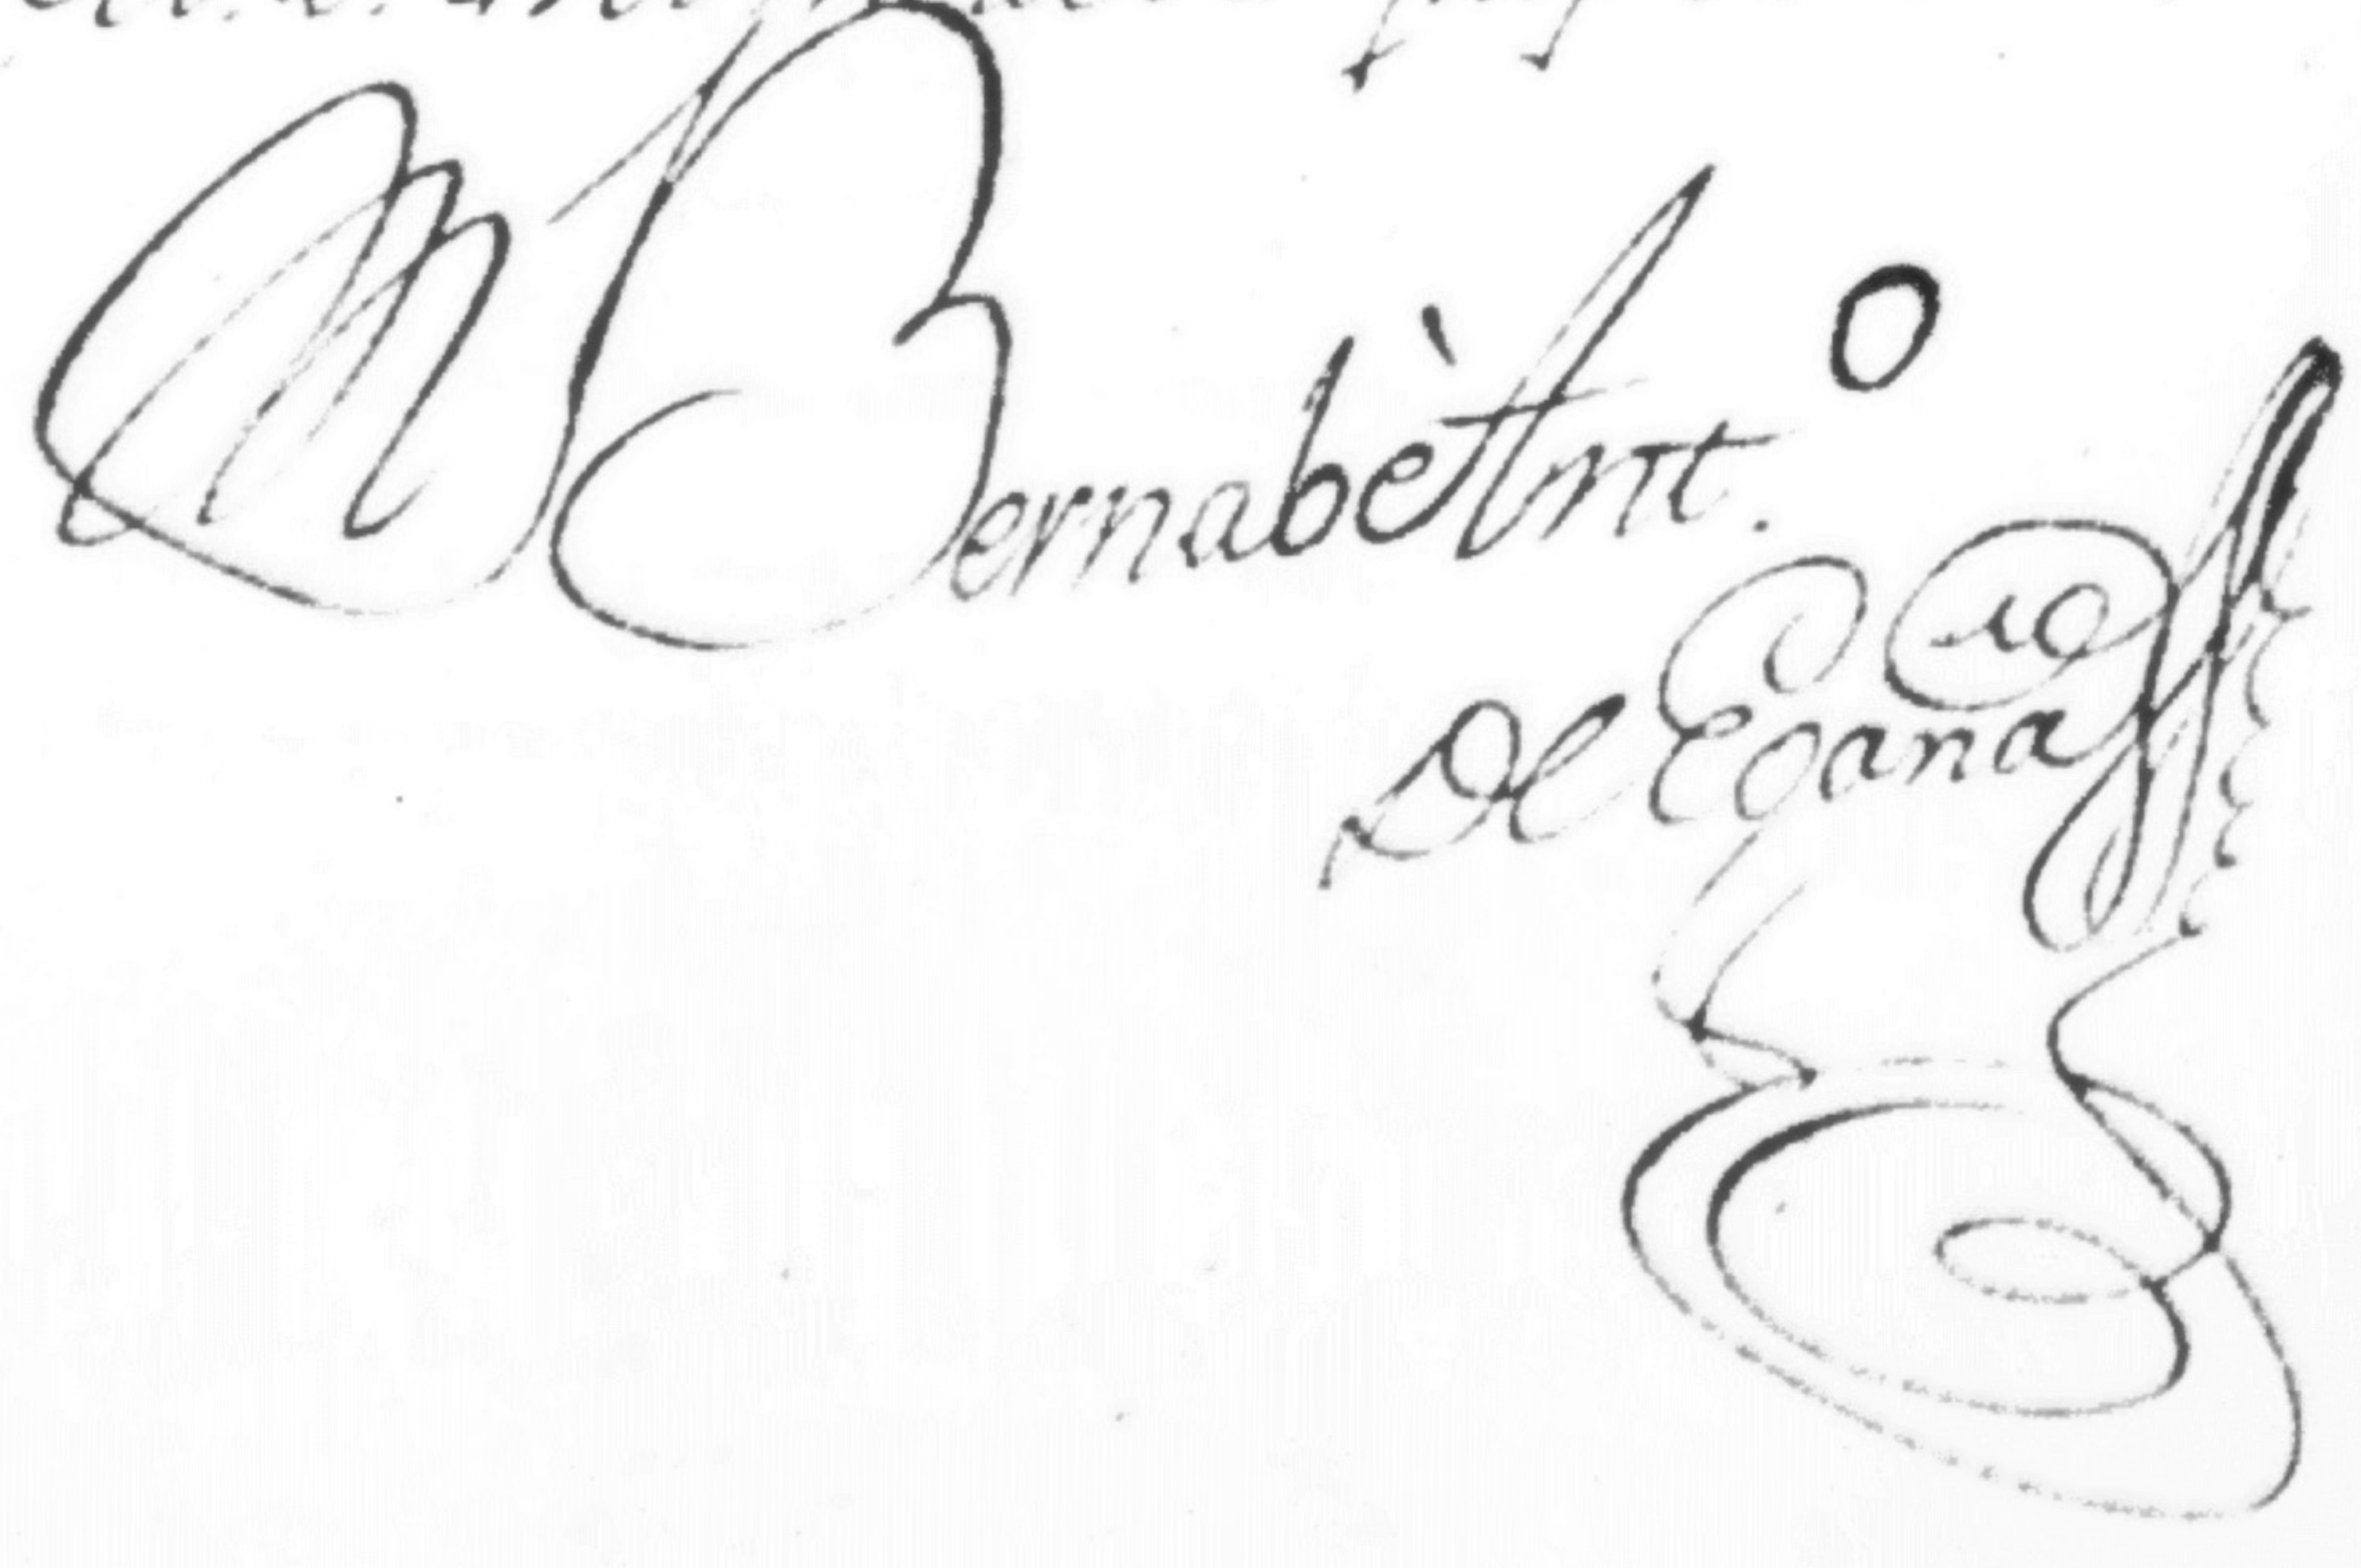 M Bernabè Ant.º
De Egaña